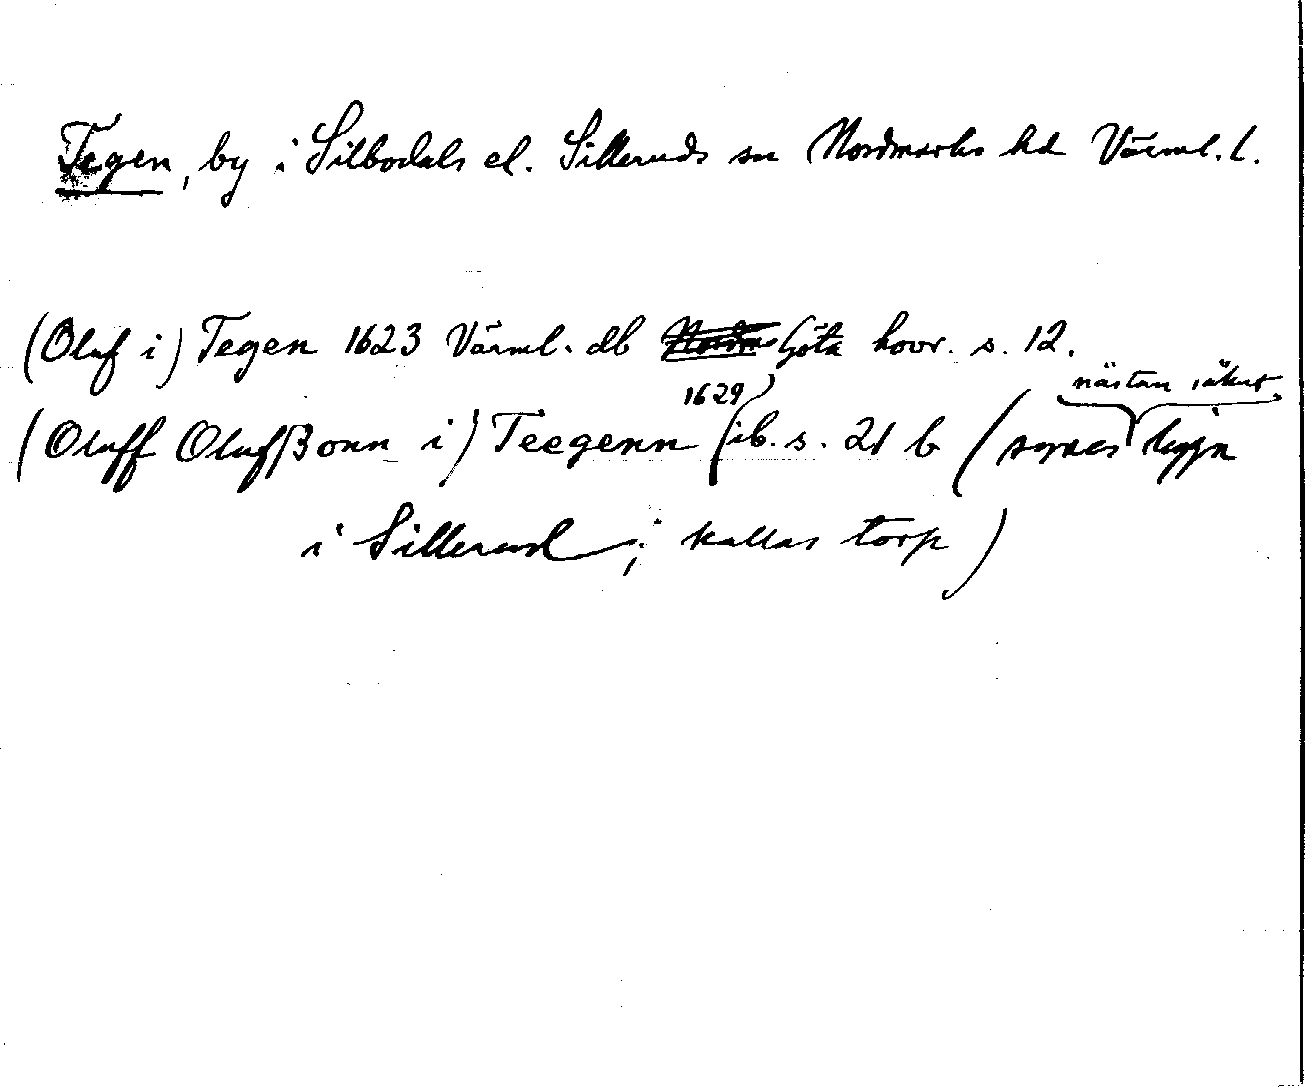 Tegen, by i Silbodals el. Silleruds sn Nordmarks hd Värml. l.
(Oluf i) Tegen 1623 Värml. db Göta hovr. s. 12.
1629) nästan säkert
(Oluff Olufßonn i) Teegenn (ib. s. 21 b (synes ligga
i Sillerud; kallas torp)